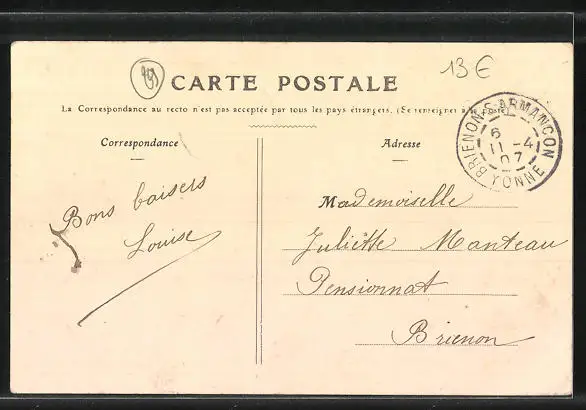 13€
CARTE POSTALE
La Correspondance au recto n'est pas acceptée par tous les pays étrangers. (Se renseigner à la poste)
Correspondance
Adresse
BRIENON-S-ARMANÇON
6
11 -4
07
YONNE
Bons baisers
Louise
Mademoiselle
Juliette Manteau
Pensionnat
Brienon